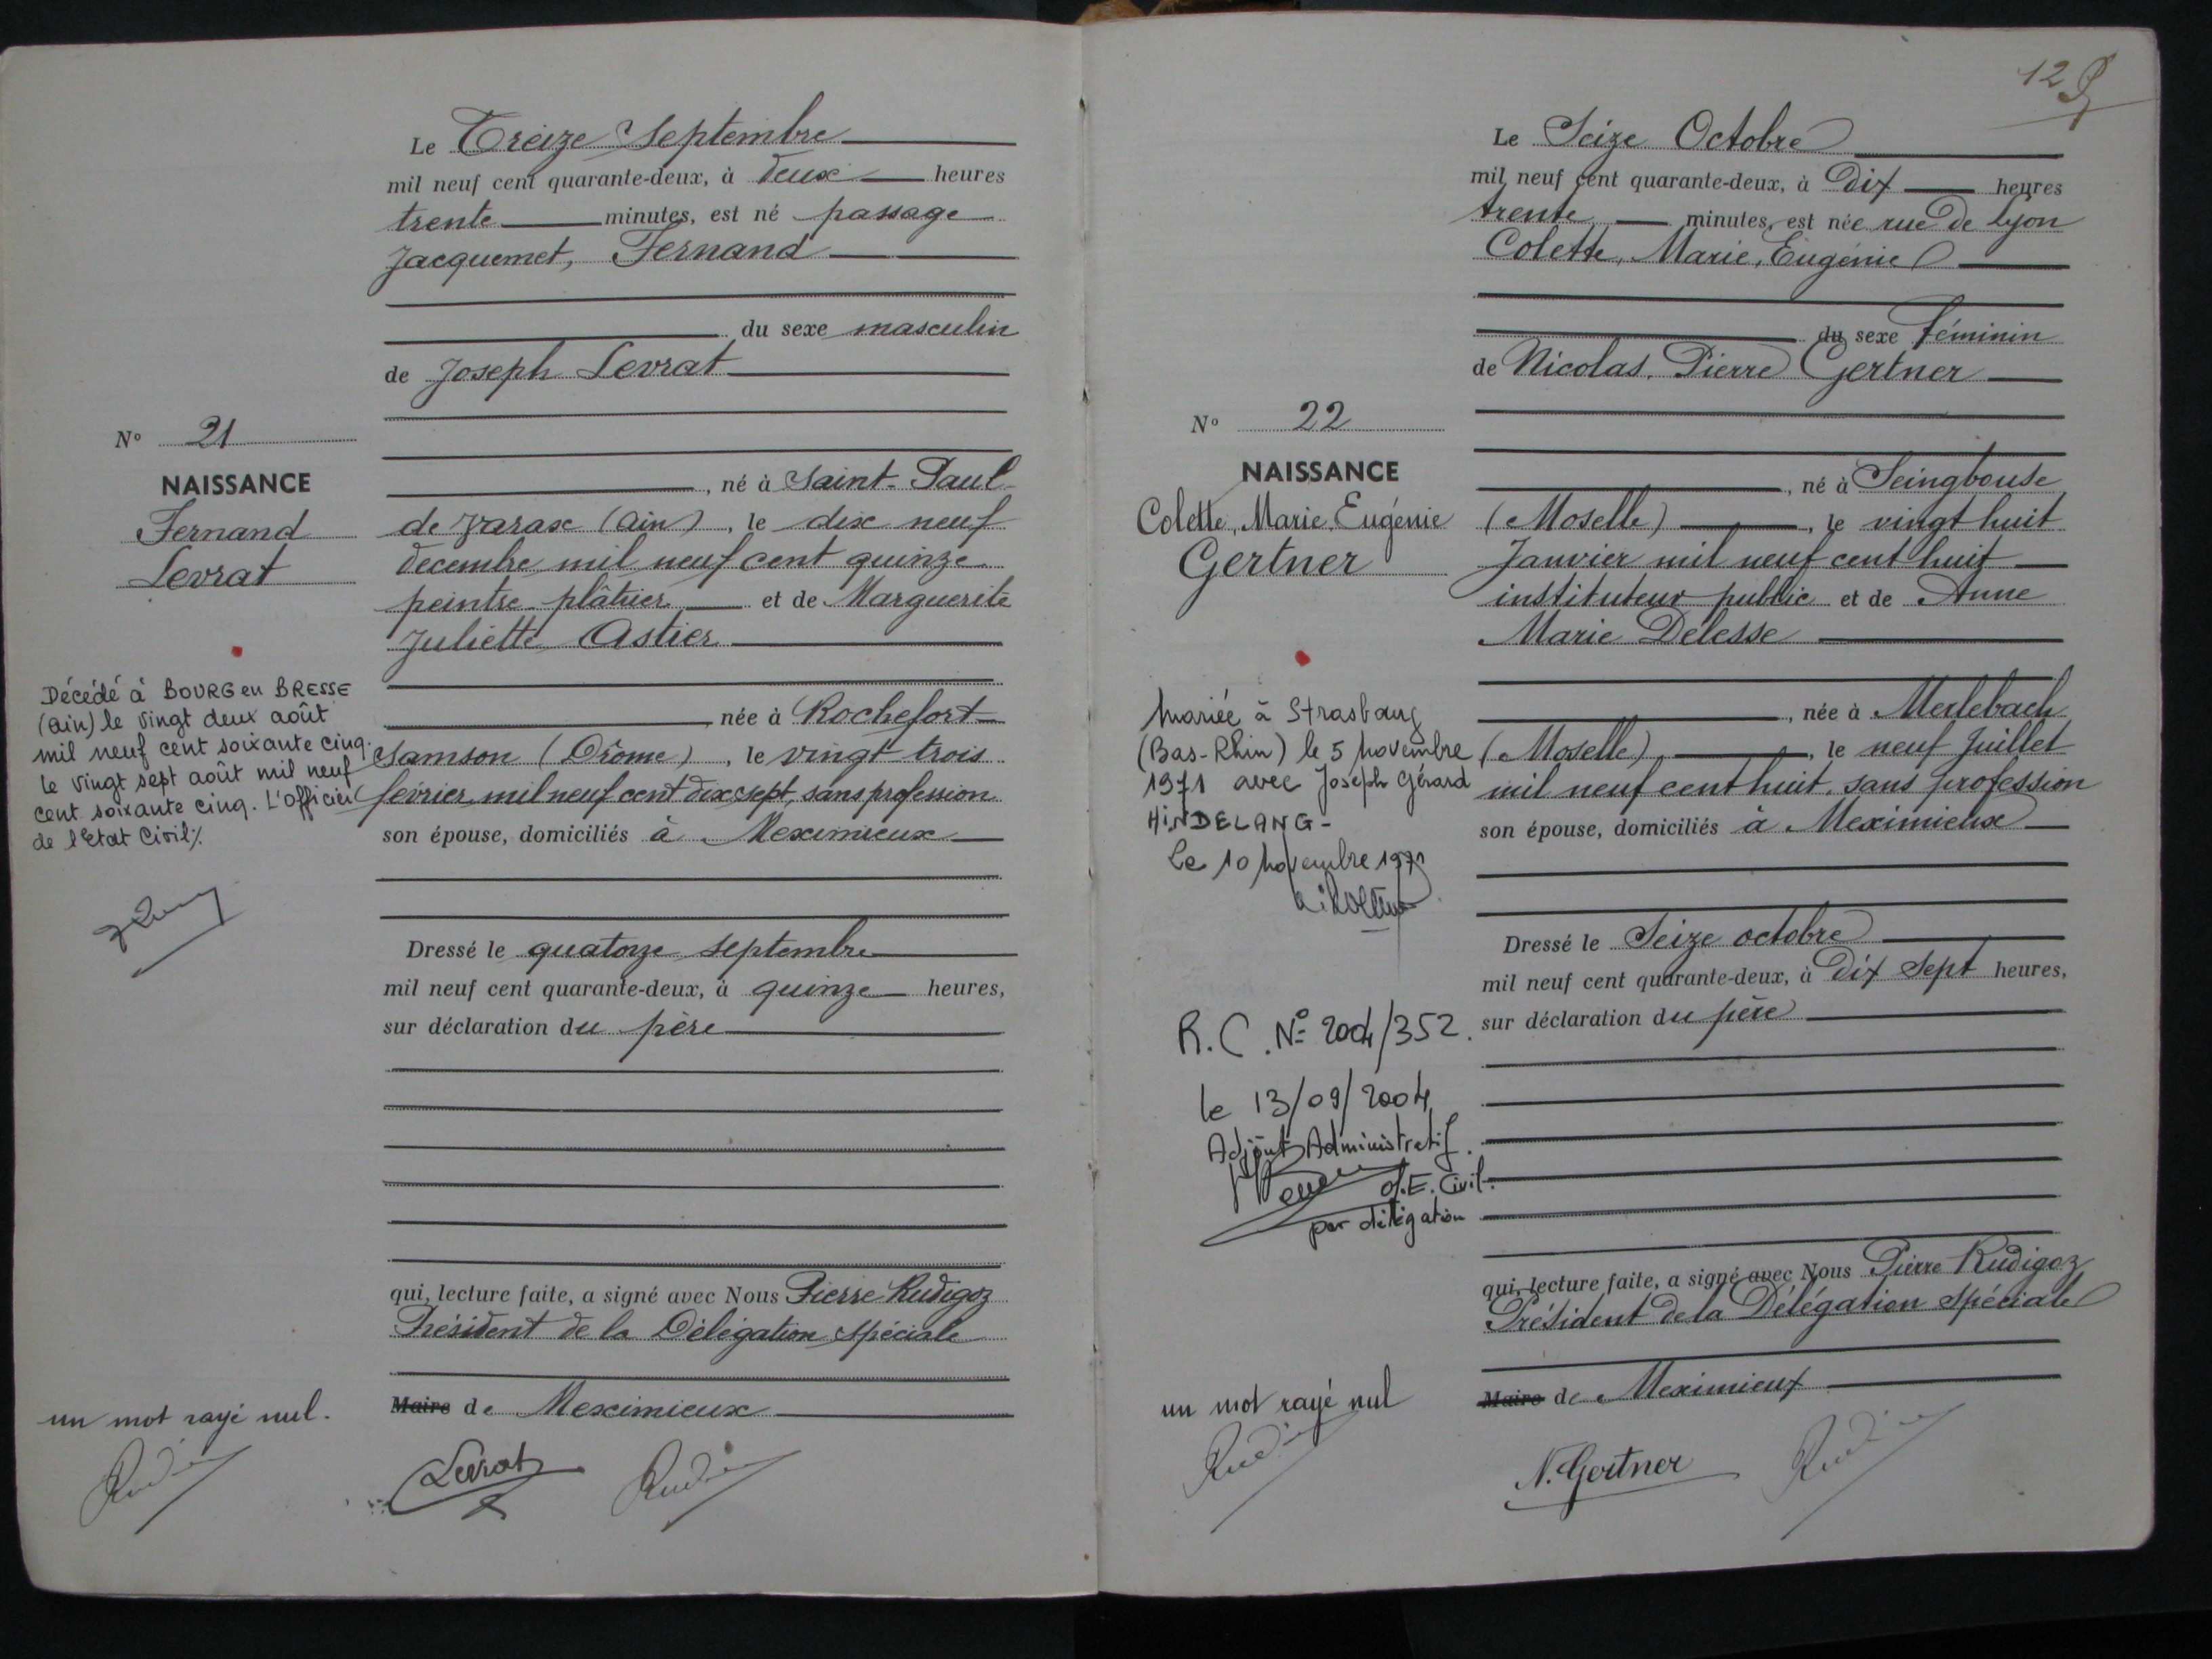 Le Treize Septembre
mil neuf cent quarante-deux, à deux heures
trente minutes, est né passage
Jacquemet, Fernand
du sexe masculin
de Joseph Levrat
N° 21
NAISSANCE
Fernand
Levrat
, né à Saint-Paul-
de Varax (Ain), le dix neuf
décembre mil neuf cent quinze
peintre plâtrier et de Marguerite
Juliette Astier
Décédé à BOURG en BRESSE
(Ain) le vingt deux août
mil neuf cent soixante cinq.
Le vingt sept août mil neuf
cent soixante cinq. L'officier
de l'Etat Civil%
, née à Rochefort-
Samson (Drôme), le vingt trois
février mil neuf cent dix sept, sans profession
son épouse, domiciliés à Meximieux
Dressé le quatorze septembre
mil neuf cent quarante-deux, à quinze heures,
sur déclaration du père
qui, lecture faite, a signé avec Nous Pierre Rudigoz
Président de la Délégation spéciale
Maire de Meximieux
un mot rayé nul.
Levrat
12
Le Seize Octobre
mil neuf cent quarante-deux, à Dix heures
trente minutes, est née rue de Lyon
Colette, Marie, Eugénie
du sexe féminin
de Nicolas, Pierre Gertner
N° 22
NAISSANCE
Colette, Marie, Eugénie
Gertner
, né à Seingbouse
(Moselle), le vingt huit
Janvier mil neuf cent huit
instituteur public et de Anne
Marie Delesse
mariée à Strasbourg
(Bas-Rhin) le 5 novembre
1971 avec Joseph Gérard
HINDELANG-
Le 10 novembre 1971
, née à Merlebach
(Moselle), le neuf Juillet
mil neuf cent huit, sans profession
son épouse, domiciliés à Meximieux
Dressé le Seize octobre
mil neuf cent quarante-deux, à Dix sept heures,
sur déclaration du père
R.C. N° 2004/352.
le 13/09/2004
Adjoint Administratif.
O.E. Civil.
par délégation
qui, lecture faite, a signé avec Nous Pierre Rudigoz
Président de la Délégation spéciale
Maire de Meximieux
un mot rayé nul
N. Gertner